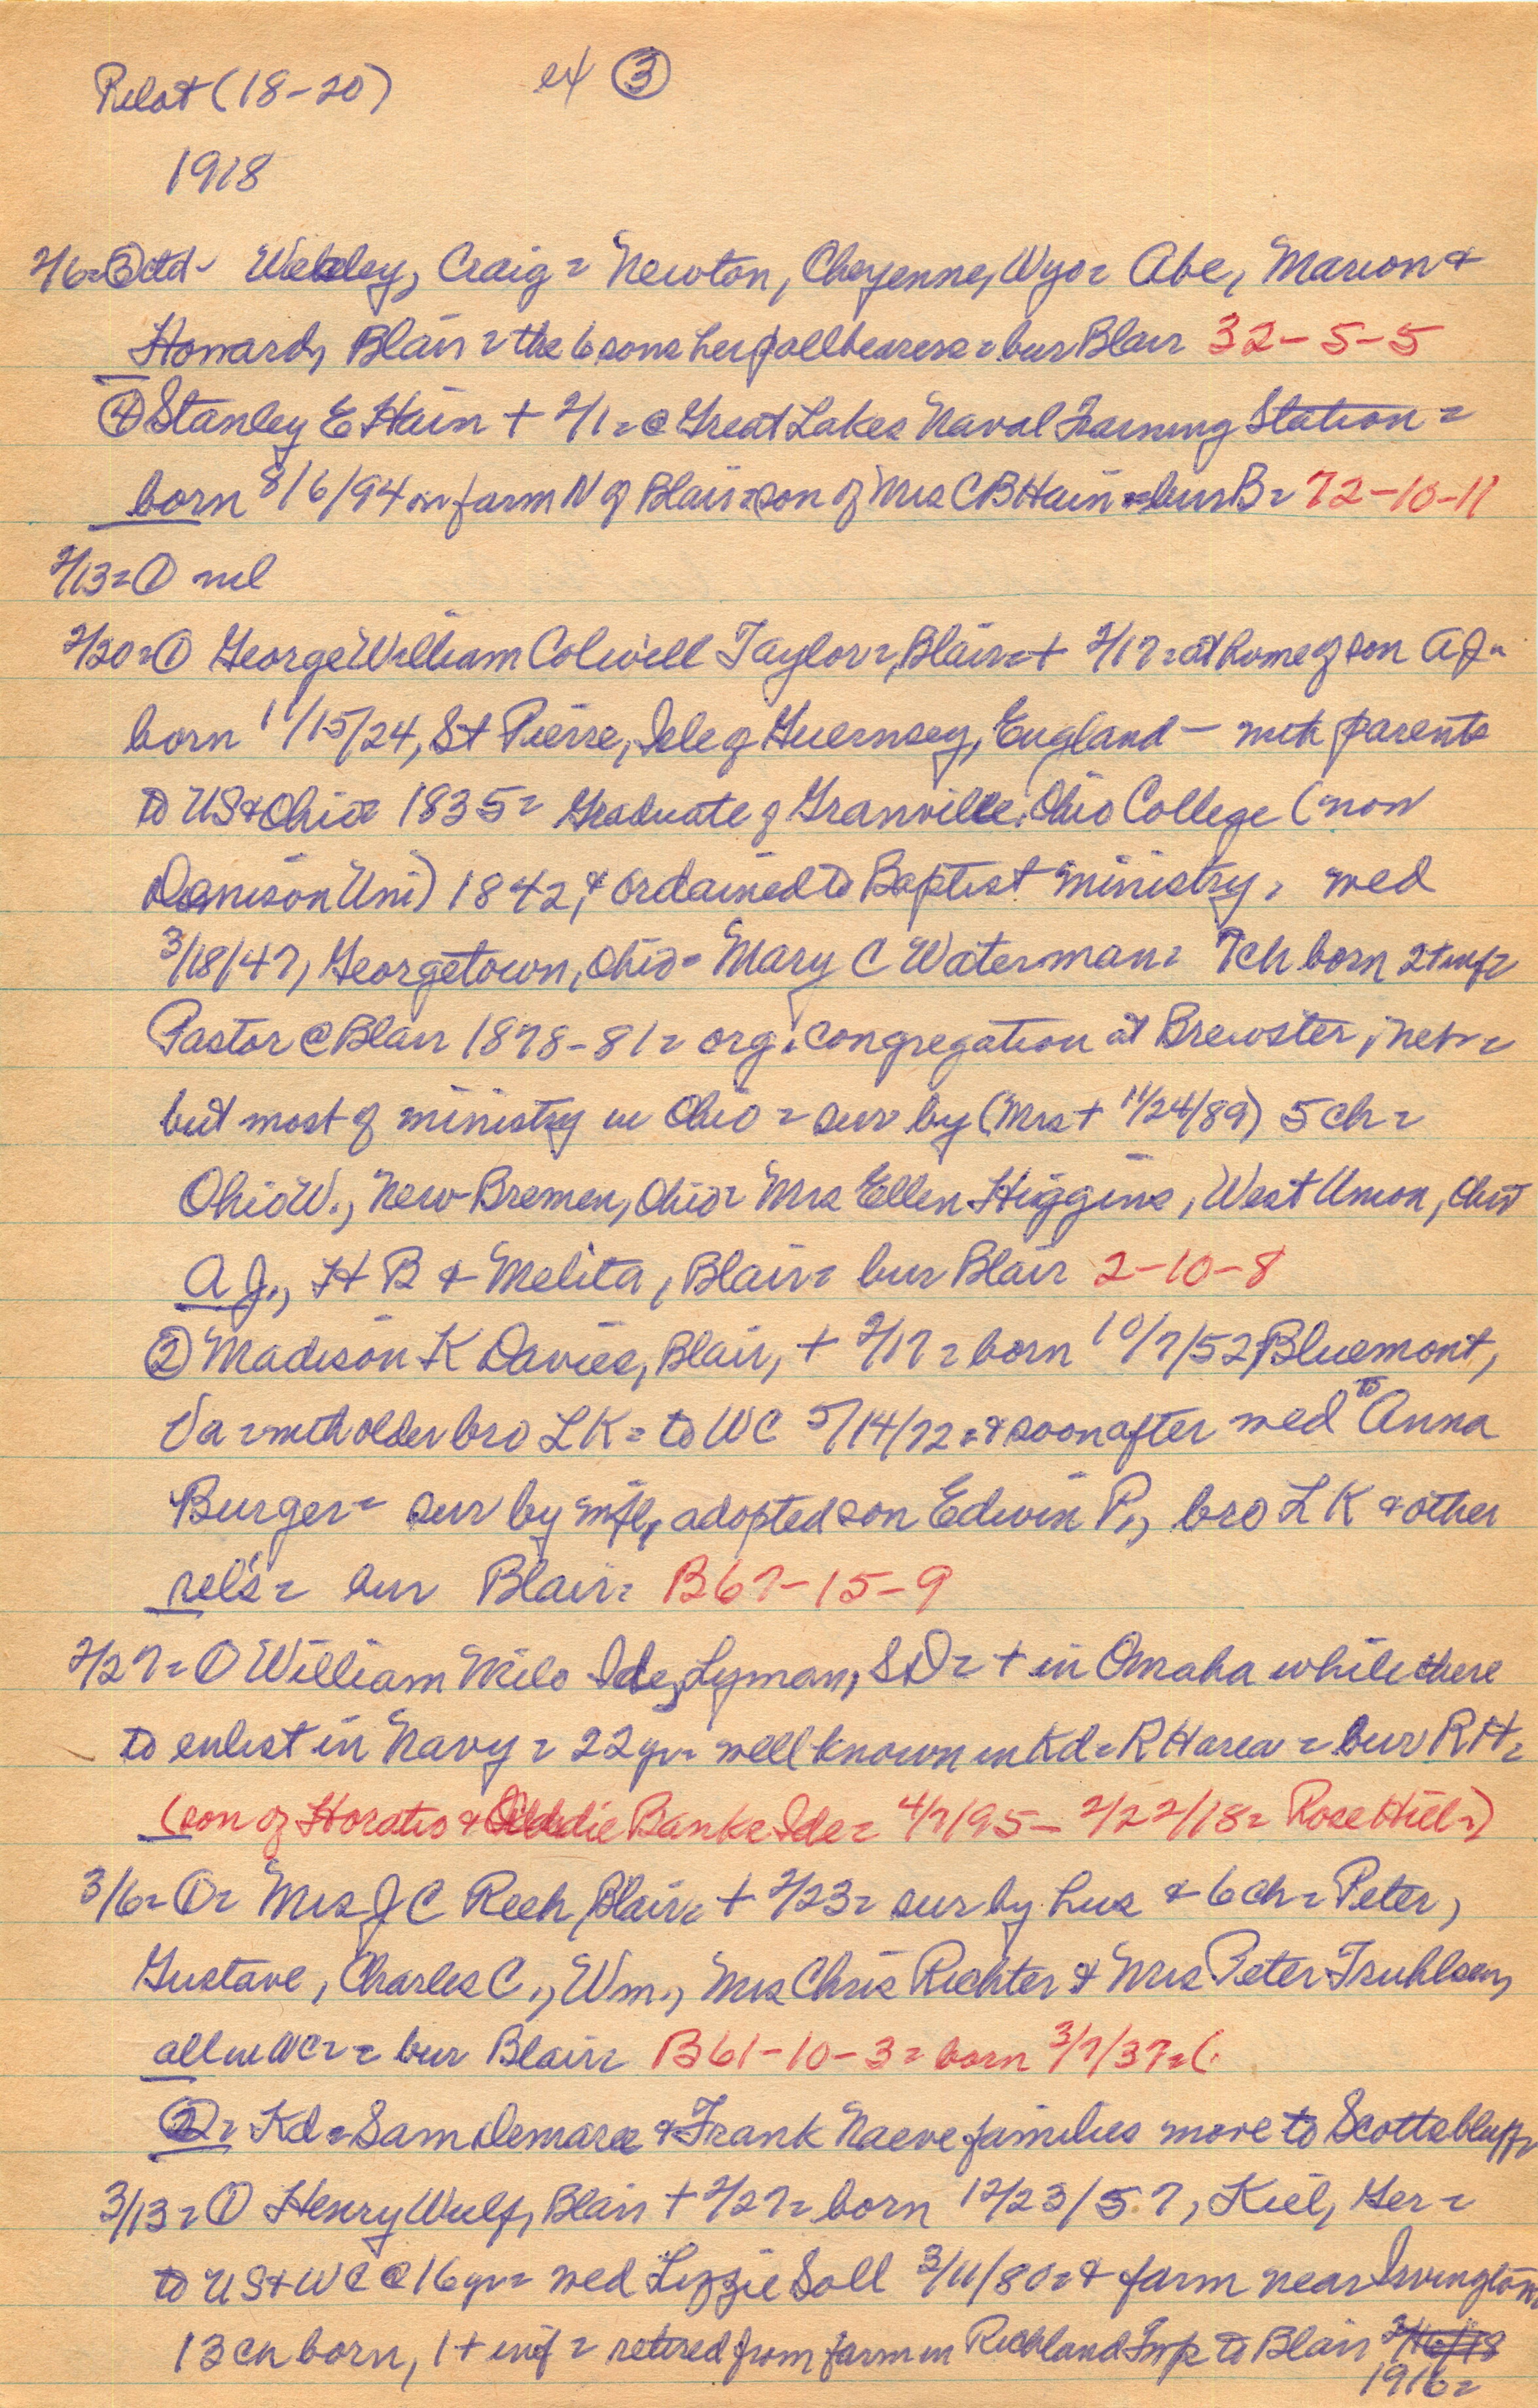 Pilot (18-20) ex ③
1918
2/6=③ctd- Webley, Craig = Newton, Cheyenne, Wyo= Abe, Marion &
Howard, Blair = the 6 sons her pallbearers = bur Blair 32-5-5
④ Stanley E Hain + 2/1 = @ Great Lakes Naval Training Station =
born 8/6/94 on farm N of Blair = son of Mrs C B Hain = bur B= 72-10-11
2/13=① nil
2/20=① George William Colwell Taylor=, Blair=+ 2/17= at home of son A J=
born 11/15/24, St Pierre, Isle of Guernsey, England - with parents
to US & Ohio= 1835= Graduate of Granville, Ohio College (now
Denison Uni) 1842, & ordained to Baptist ministry, wed
3/18/47, Georgetown, Ohio= Mary C Waterman= 7 ch born 2+inf=
Pastor @ Blair 1878-81= org. congregation at Brewster, Neb=
but most of ministry in Ohio = sur by (Mrs + 11/24/89) 5 ch=
Ohio W., New Bremen, Ohio= Mrs Ellen Higgins, West Union, Ohio
A J., H B & Melita, Blair= bur Blair 2-10-8
② Madison K Davies, Blair, + 2/17 = born 10/7/52 Bluemont,
Va = with older bro L K = to WC 5/14/72 = & soon after wed to Anna
Burger= sur by wife, adopted son Edwin P., bro L K & other
rel's = bur Blair= B67-15-9
2/27=① William Milo Ide, Lyman, SD= + in Omaha while there
to enlist in Navy = 22 yr= well known in Kd=RH area = bur RH=
(son of Horatio & Addie Banks Ide= 4/7/95- 2/22/18= Rose Hill=)
3/6=①= Mrs J C Reeh, Blair= + 2/23= sur by hus & 6 ch= Peter,
Gustave, Charles C., Wm., Mrs Chris Richter & Mrs Peter Truhlsen,
all in WC= = bur Blair= B61-10-3= born 3/7/37=(.
②= Kd= Sam Demara & Frank Naeve families move to Scottsbluff=
3/13=① Henry Wulf, Blair + 2/27= born 12/23/57, Kiel, Ger=
to US & WC @ 16 yr= wed Lizzie Soll 3/11/80= & farm near Irvington
13 ch born, 1+ inf = retired from farm in Richland Twp to Blair
1916=